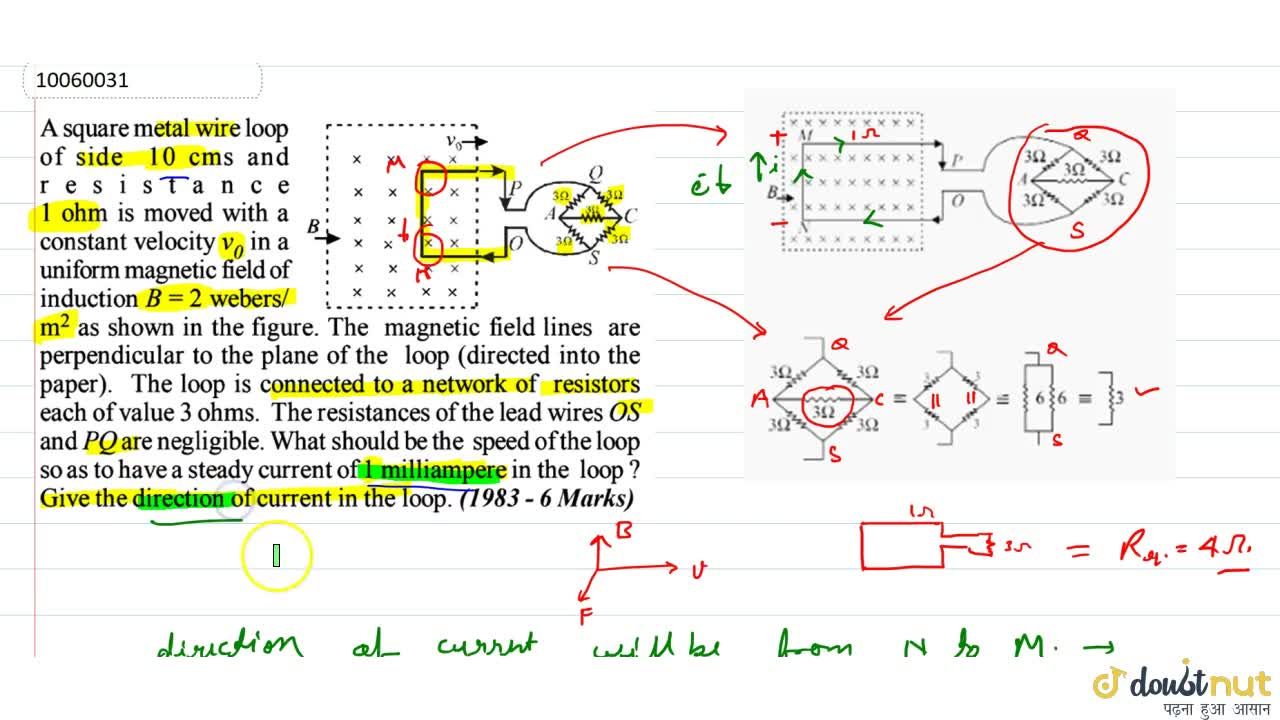 10060031
A square metal wire loop
of side 10 cms and
resistance
1 ohm is moved with a
constant velocity v0 in a
uniform magnetic field of
induction B = 2 webers/
m2 as shown in the figure. The magnetic field lines are
perpendicular to the plane of the loop (directed into the
paper). The loop is connected to a network of resistors
each of value 3 ohms. The resistances of the lead wires OS
and PQ are negligible. What should be the speed of the loop
so as to have a steady current of 1 milliampere in the loop ?
Give the direction of current in the loop. (1983 - 6 Marks)
v0
M
B
P
O
Q
A
C
S
3Ω 3Ω
3Ω 3Ω
+ M 1Ω
i
B
- N
P
O
Q
3Ω 3Ω
A 3Ω C
3Ω 3Ω
S
Q
3Ω 3Ω
A 3Ω C
3Ω 3Ω
S
=
3 3
11 11
3 3
=
Q
6 6
S
≡ 3 ✓
B
v
F
1Ω
3Ω
= Req. = 4Ω.
direction of current will be from N to M. →
doubtnut
पढ़ना हुआ आसान